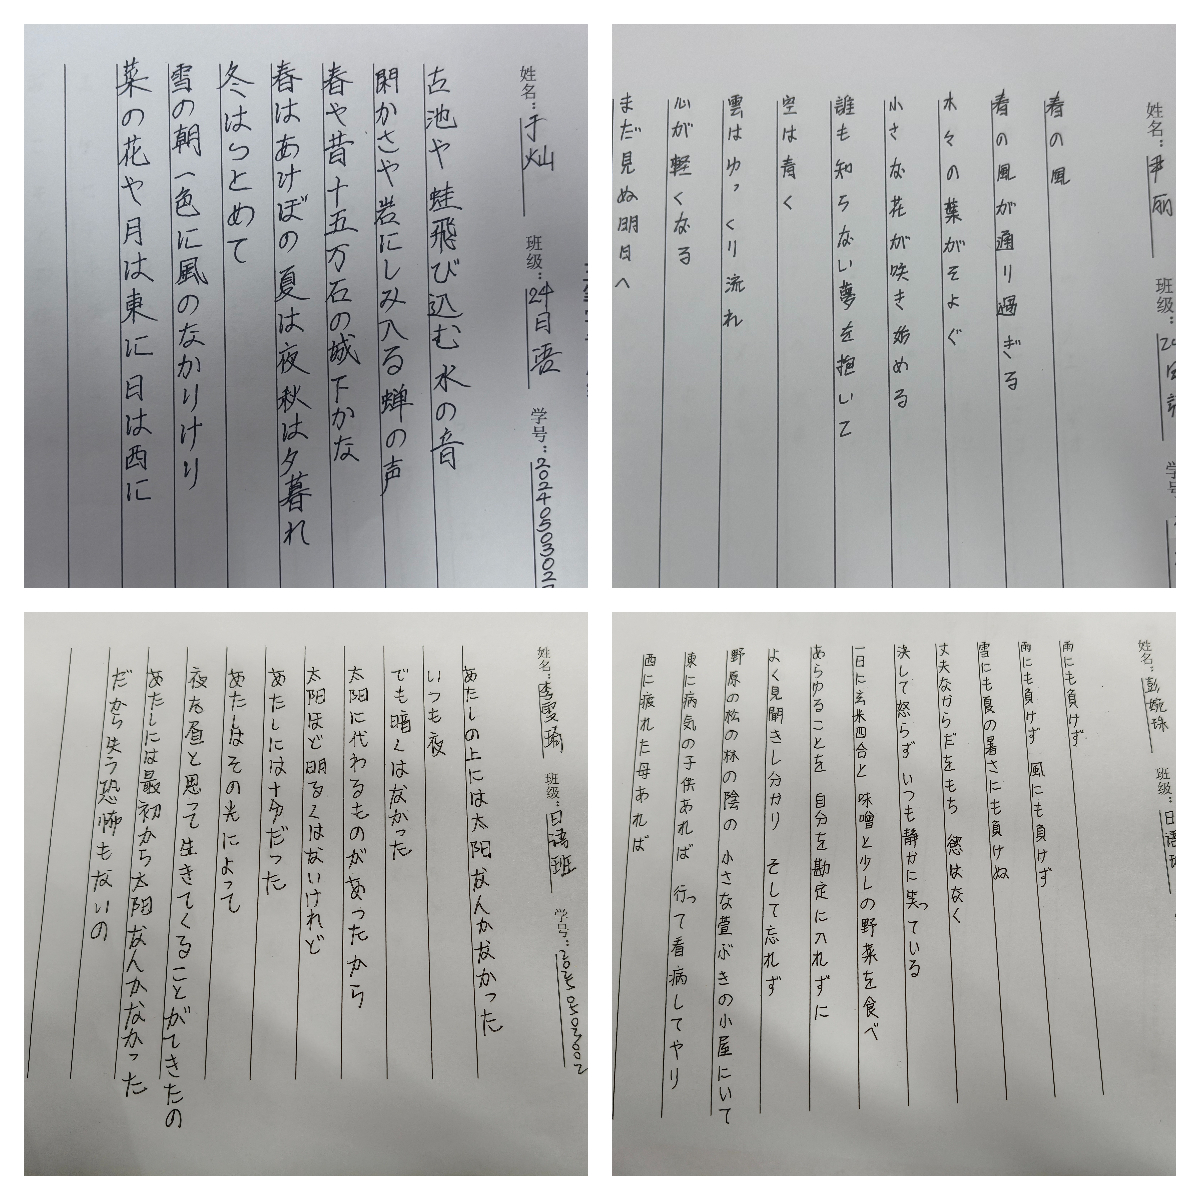 姓名:于灿 班级:24日语 学号:202405030
古池や蛙飛び込む水の音
閑かさや岩にしみ入る蝉の声
春や昔十五万石の城下かな
春はあけぼの夏は夜秋は夕暮れ
冬はつとめて
雪の朝一色に風のなかりけり
菜の花や月は東に日は西に
姓名:尹丽 班级: 学号:
春の風
春の風が通り過ぎる
木々の葉がそよぐ
小さな花が咲き始める
誰も知らない夢を抱いて
空は青く
雲はゆっくり流れ
心が軽くなる
まだ見ぬ明日へ
姓名:李雯琦 班级:日语班 学号:
あたしの上には太阳なんかなかった
いつも夜
でも暗くはなかった
太阳に代わるものがあったから
太阳ほど明るくはないけれど
あたしには十分だった
あたしはその光によって
夜を昼と思って生きてくることができたの
あたしには最初から太阳なんかなかった
だから失う恐怖もないの
姓名:彭婉珠 班级:日语班
雨にも負けず
雨にも負けず 風にも負けず
雪にも夏の暑さにも負けぬ
丈夫なからだをもち 慾はなく
決して怒らず いつも静かに笑っている
一日に玄米四合と 味噌と少しの野菜を食べ
あらゆることを 自分を勘定に入れずに
よく見聞きし分かり そして忘れず
野原の松の林の陰の 小さな萱ぶきの小屋にいて
東に病気の子供あれば 行って看病してやり
西に疲れた母あれば